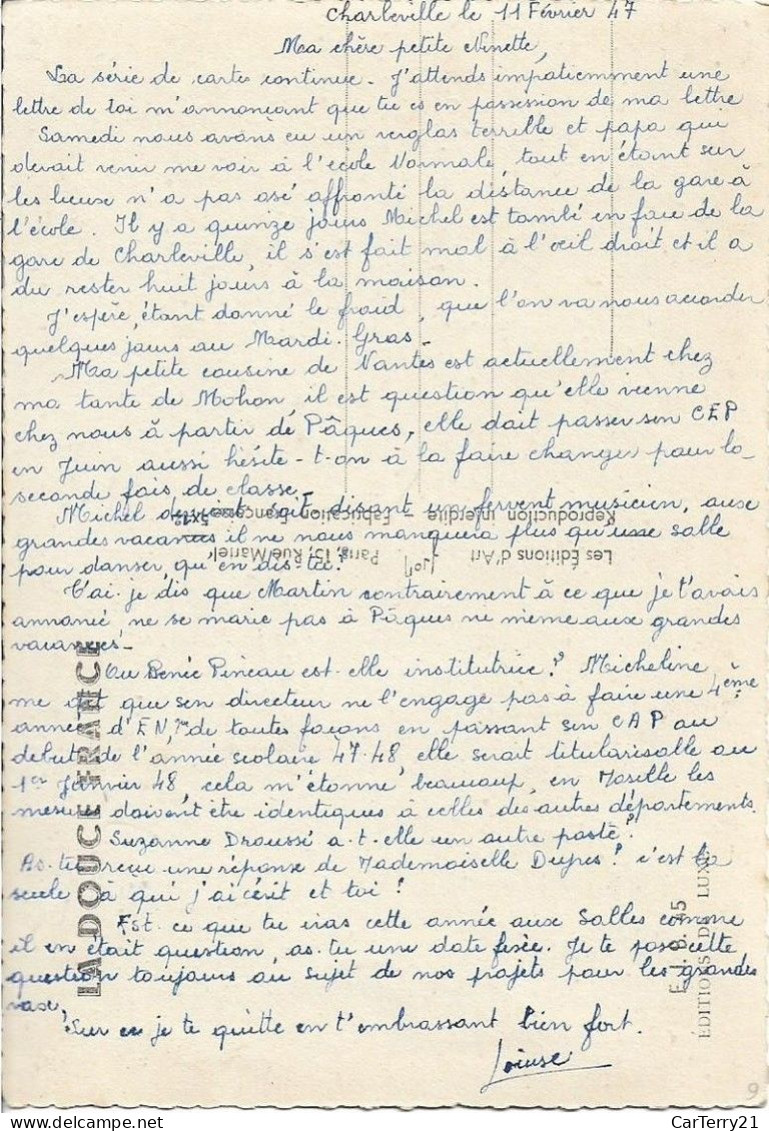 Charleville le 11 Février 47
Ma chère petite Ninette,
La série de cartes continue. J'attends impatiemment une
lettre de toi m'annonçant que tu es en possession de ma lettre
Samedi nous avons eu un verglas terrible et papa qui
devait venir me voir à l'école Normale tout en étant sur
les lieux n'a pas osé affronté la distance de la gare à
l'école. Il y a quinze jours Michel est tombé en face de la
gare de Charleville, il s'est fait mal à l'oeil droit et il a
du rester huit jours à la maison.
J'espère, étant donné le froid, que l'on va nous accorder
quelques jours au Mardi-Gras.
Ma petite cousine de Nantes est actuellement chez
ma tante de Mohon il est question qu'elle vienne
chez nous à partir de Pâques, elle doit passer son CEP
en Juin aussi hésite-t-on à la faire changer pour la
seconde fois de classe.
Michel devient soit-disant un fervent musicien, aux
grandes vacances il ne nous manquera plus qu'une salle
pour danser, qu'en dis-tu?
T'ai-je dis que Martin contrairement à ce que je t'avais
annoncé ne se marie pas à Pâques ni même aux grandes
vacances.
Ou Renée Pineau est-elle institutrice? Micheline
me dit que son directeur ne l'engage pas à faire une 4ème
année d'EN, de toutes façons en passant son CAP au
début de l'année scolaire 47-48, elle serait titularisable au
1er Janvier 48, cela m'étonne beaucoup, en Moselle les
mesures doivent être identiques à celles des autres départements.
Suzanne Droussi a-t-elle un autre poste?
As-tu reçu une réponse de Mademoiselle Dupes? c'est la
seule à qui j'ai écrit et toi?
Est-ce que tu iras cette année aux Salles comme
il en était question, as-tu une date fixée. Je te pose cette
question toujours au sujet de nos projets pour les grandes
vac.
Sur ce je te quitte en t'embrassant bien fort.
Louise
LA DOUCE FRANCE
Reproduction interdite - Fabrication Française
Les Éditions d'Art
Paris, 15, Rue Martel
ÉDITIONS DE LUXE
9
CarTerry21